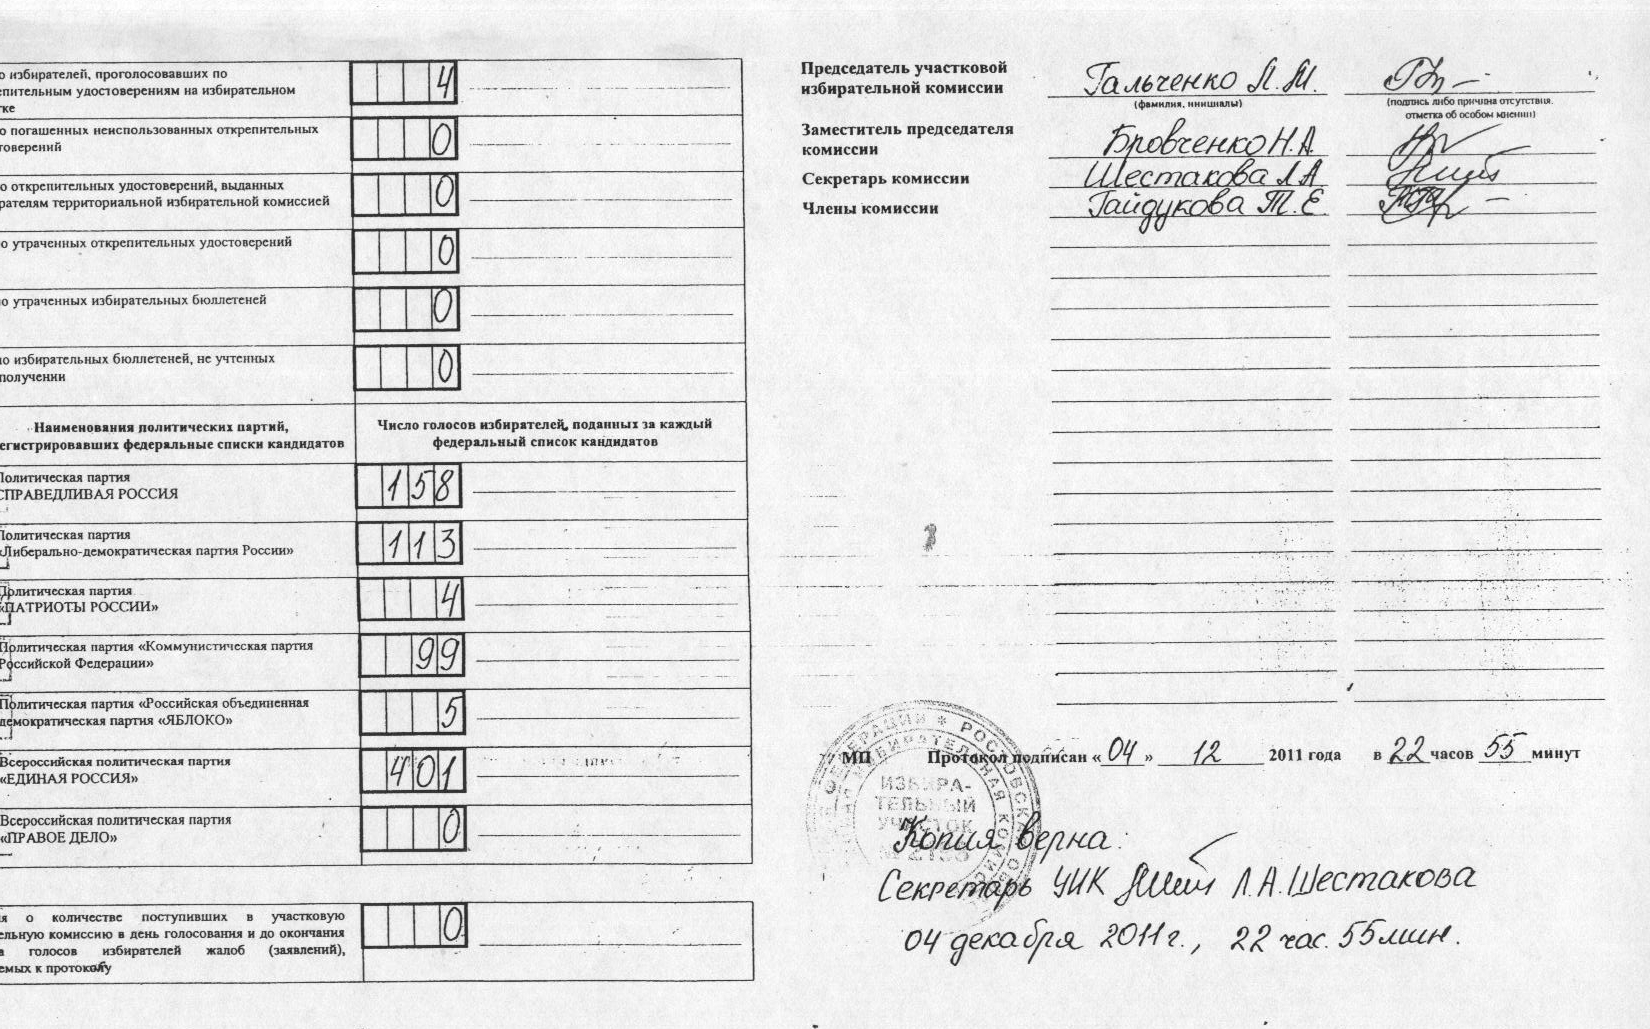 о избирателей, проголосовавших по
епительным удостоверениям на избирательном
тке
4
о погашенных неиспользованных открепительных
товерений
0
о открепительных удостоверений, выданных
рателям территориальной избирательной комиссией
0
о утраченных открепительных удостоверений
0
о утраченных избирательных бюллетеней
0
о избирательных бюллетеней, не учтенных
получении
0
Наименования политических партий,
егистрировавших федеральные списки кандидатов
Число голосов избирателей, поданных за каждый
федеральный список кандидатов
Политическая партия
СПРАВЕДЛИВАЯ РОССИЯ
158
Политическая партия
«Либерально-демократическая партия России»
113
Политическая партия
«ПАТРИОТЫ РОССИИ»
4
Политическая партия «Коммунистическая партия
Российской Федерации»
99
Политическая партия «Российская объединенная
демократическая партия «ЯБЛОКО»
5
Всероссийская политическая партия
«ЕДИНАЯ РОССИЯ»
401
Всероссийская политическая партия
«ПРАВОЕ ДЕЛО»
0
я о количестве поступивших в участковую
ельную комиссию в день голосования и до окончания
а голосов избирателей жалоб (заявлений),
емых к протоколу
0
Председатель участковой
избирательной комиссии
Гальченко Л.М.
(фамилия, инициалы)
(подпись либо причина отсутствия,
отметка об особом мнении)
Заместитель председателя
комиссии
Бровченко Н.А.
Секретарь комиссии
Шестакова Л А
Члены комиссии
Гайдукова Т. Е.
МП Протокол подписан «04» 12 2011 года в 22 часов 55 минут
ИЗБИРА-
ТЕЛЬНЫЙ
УЧАСТОК
Копия верна:
Секретарь УИК Л.А.Шестакова
04 декабря 2011г., 22 час. 55 мин.